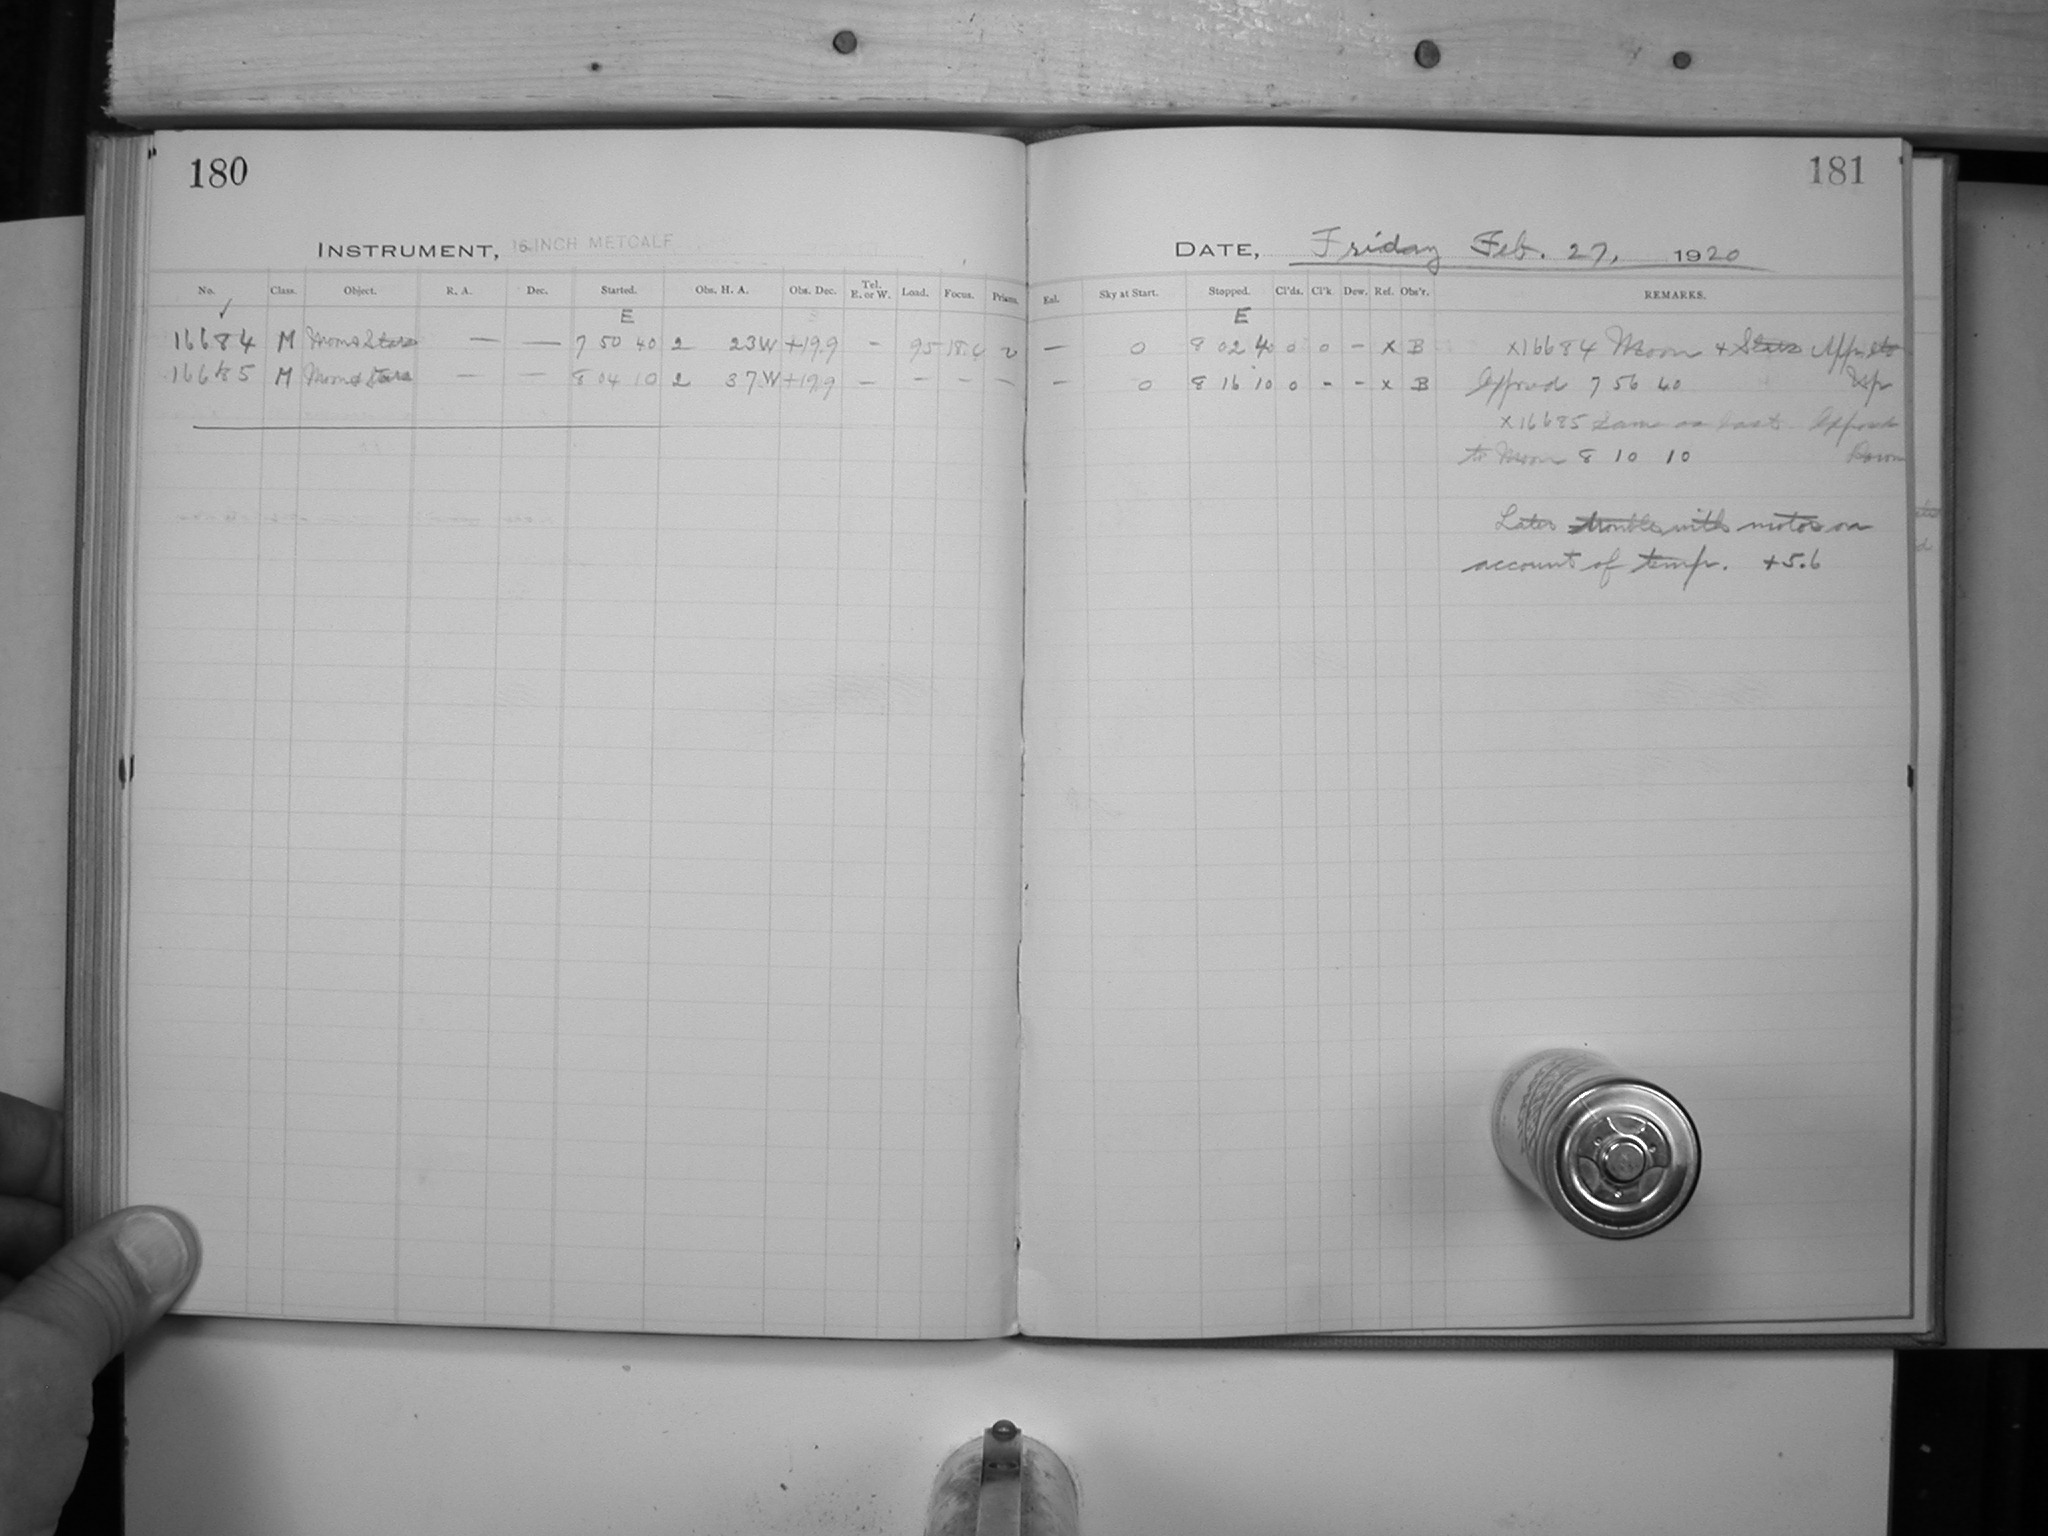 180
INSTRUMENT, 16-INCH METCALF
No. Class. Object. R. A. Dec. Started. Obs. H. A. Obs. Dec. Tel. E. or W. Load. Focus. Prisms.
✓ E
16684 M Moon & Stars — — 7 50 40 2 23W +19.9 - 95 18.6 0
16685 M Moon & Stars — — 8 04 10 2 37W +19.9 — — — —
181
DATE, Friday Feb. 27, 1920
Exl. Sky at Start. Stopped. Cl'ds. Cl'k. Dew. Ref. Obs'r. REMARKS.
E
— 0 8 02 40 0 0 - x B x16684 Moon + Stars
— 0 8 16 10 0 - - x B Exposed 7 56 40 Up
x16685 Same as last. Exposed
to Moon 8 10 10 Down
Later trouble with motor on
account of temp. +5.6